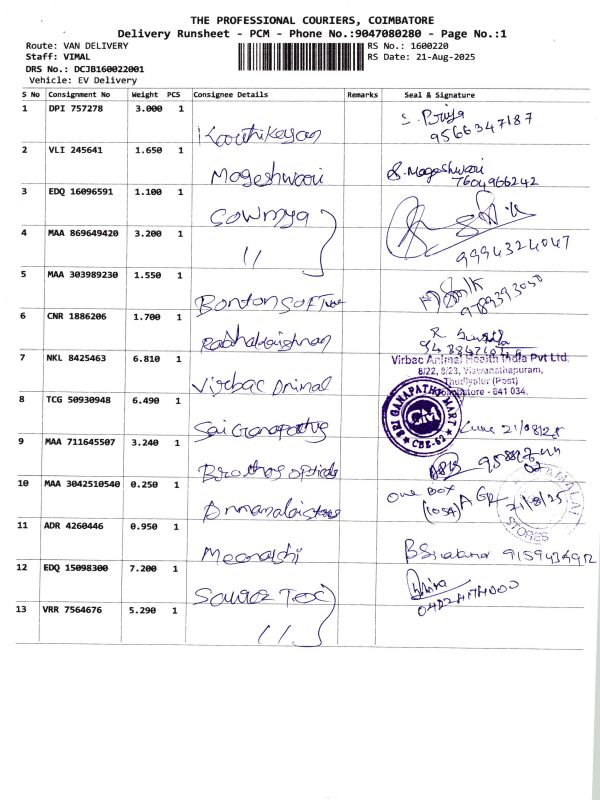 THE PROFESSIONAL COURIERS, COIMBATORE
Delivery Runsheet - PCM - Phone No.:9047080280 - Page No.:1
Route: VAN DELIVERY RS No.: 1600220
Staff: VIMAL RS Date: 21-Aug-2025
DRS No.: DCJB160022001
Vehicle: EV Delivery
S No Consignment No Weight PCS Consignee Details Remarks Seal & Signature
1 DPI 757278 3.000 1 Karthikeyan S. Priya
9566347187
2 VLI 245641 1.650 1 Mageshwari S. Mageshwari
7604966242
3 EDQ 16096591 1.100 1 Sowmya
4 MAA 869649420 3.200 1 " 9994324047
5 MAA 303989230 1.550 1 Bonton Software 9789393050
6 CNR 1886206 1.700 1 Radhakrishnan R.
7 NKL 8425463 6.810 1 Virbac Animal Virbac Animal Health India Pvt Ltd.
8/22, 8/23, Viswanathapuram,
Thudiyalur (Post)
Coimbatore - 641 034.
8 TCG 50930948 6.490 1 Sai Ganapathy SRI GANAPATHY MART GM CBE-62 21/08/25
9 MAA 711645507 3.240 1 Brothers opticals
10 MAA 3042510540 0.250 1 Annamalai stores one Box 21/8/25 STORES
11 ADR 4260446 0.950 1 Meenakshi 9159434912
12 EDQ 15098300 7.200 1
13 VRR 7564676 5.290 1 "